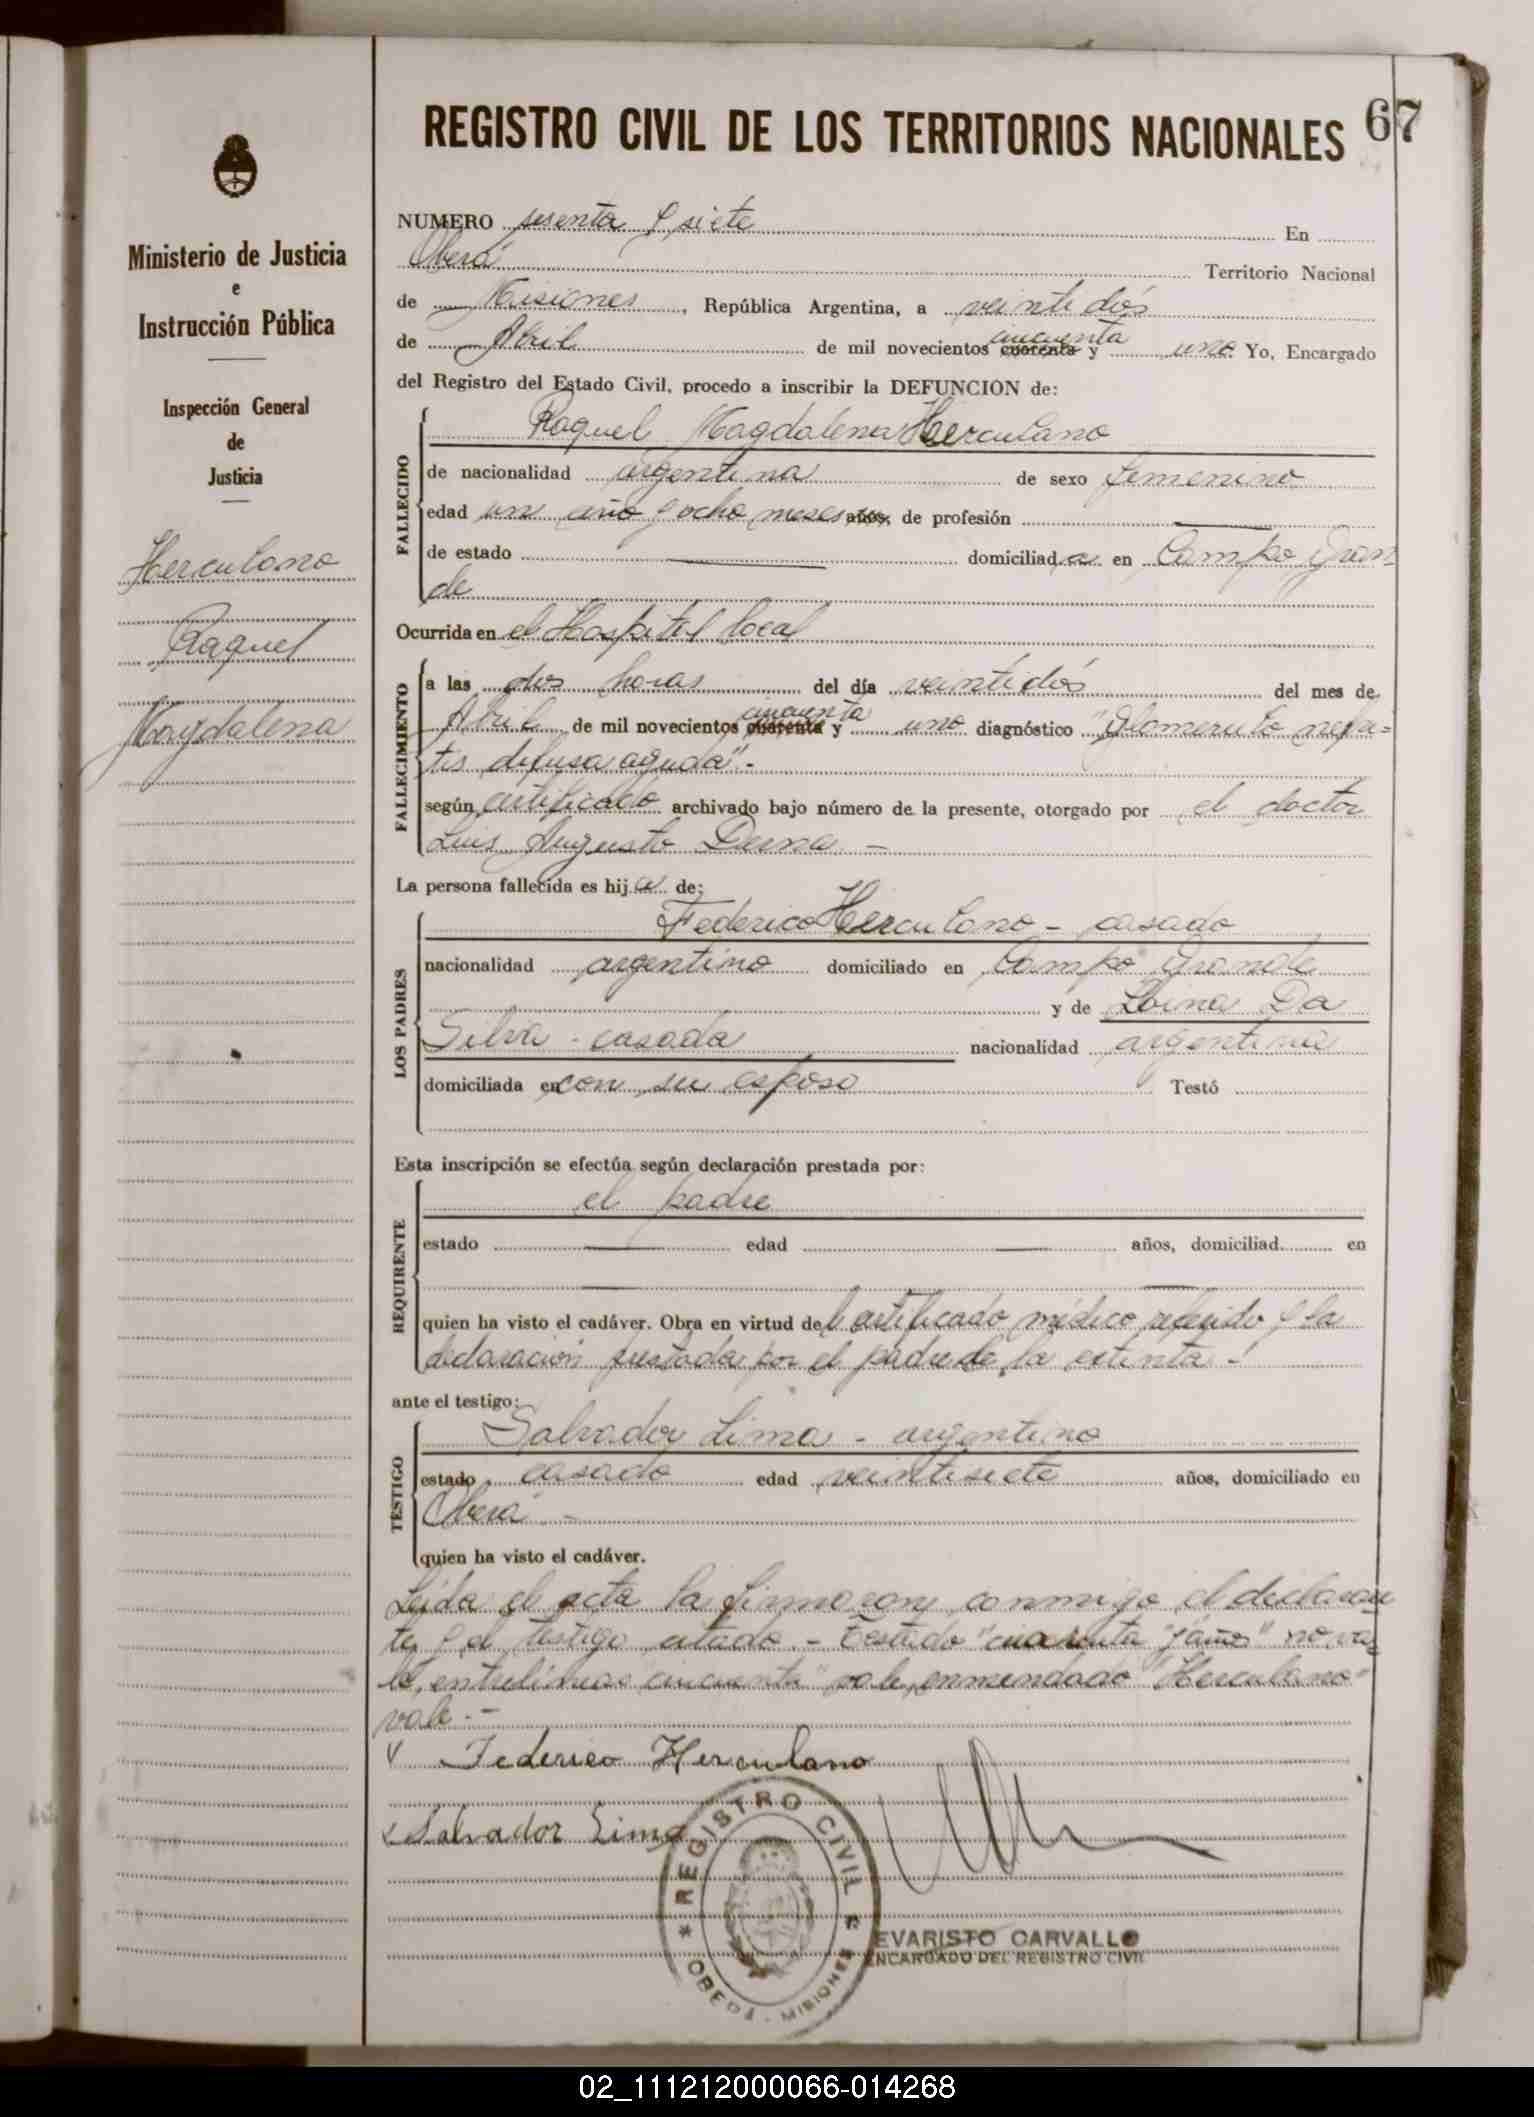 67
REGISTRO CIVIL DE LOS TERRITORIOS NACIONALES
Ministerio de Justicia
e
Instrucción Pública
Inspección General
de
Justicia
Herculano
Raquel
Magdalena
NUMERO sesenta y siete En
Oberá Territorio Nacional
de Misiones, República Argentina, a veintidós
cincuenta
de Abril de mil novecientos cuarenta y uno. Yo, Encargado
del Registro del Estado Civil, procedo a inscribir la DEFUNCION de:
FALLECIDO
Raquel Magdalena Herculano
de nacionalidad argentina de sexo femenino
edad un año y ocho meses años, de profesión
de estado domiciliada en Campo Gran-
de
Ocurrida en el Hospital local
FALLECIMIENTO
a las dos horas del día veintidós del mes de
cincuenta
Abril de mil novecientos cuarenta y uno diagnóstico "Glomerulo nefri-
tis difusa aguda".-
según certificado archivado bajo número de la presente, otorgado por el doctor
Luis Augusto -
La persona fallecida es hija de:
LOS PADRES
Federico Herculano - casado
nacionalidad argentino domiciliado en Campo Grande
y de Da
Silva - casada nacionalidad argentina
domiciliada en con su esposo Testó
Esta inscripción se efectúa según declaración prestada por:
REQUIRENTE
el padre
estado edad años, domiciliad en
quien ha visto el cadáver. Obra en virtud del certificado médico referido y la
declaración prestada por el padre de la extinta -
ante el testigo:
TESTIGO
Salvador Lima - argentino
estado casado edad veintisiete años, domiciliado en
Oberá -
quien ha visto el cadáver.
Leída el acta la firmaron conmigo el declaran-
te y el testigo citado. - Testado "cuarenta" y "años" no va-
le, entrelíneas "cincuenta" vale, enmendado "Herculano"
vale.-
Federico Herculano
Salvador Lima
REGISTRO CIVIL
OBERÁ - MISIONES
EVARISTO CARVALLO
ENCARGADO DEL REGISTRO CIVIL
02_111212000066-014268